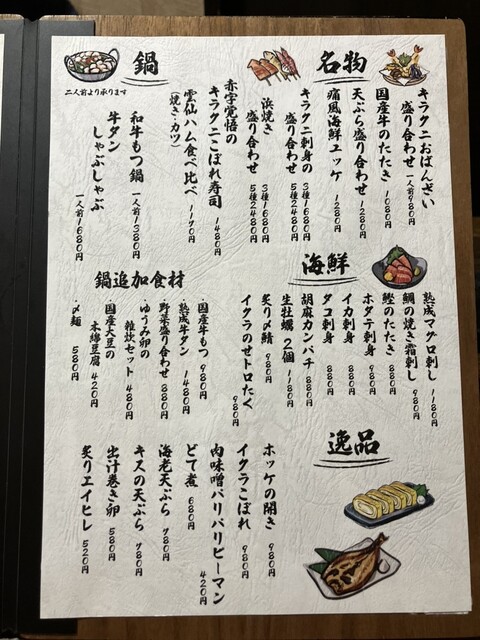 名物
キラクニおばんざい
盛り合わせ 一人前980円
国産牛のたたき 1080円
天ぷら盛り合わせ 1280円
痛風海鮮ユッケ 1280円
キラクニ刺身の
盛り合わせ 3種1680円
5種2480円
浜焼き
盛り合わせ 3種1680円
5種2480円
赤字覚悟の
キラクニこぼれ寿司 1480円
雲仙ハム食べ比べ 1170円
(焼き・カツ)
鍋
二人前より承ります
和牛もつ鍋 一人前1380円
牛タン
しゃぶしゃぶ 一人前1680円
海鮮
熟成マグロ刺し 1180円
鯛の焼き霜刺し 980円
鰹のたたき 880円
ホタテ刺身 980円
イカ刺身 880円
タコ刺身 880円
胡麻カンパチ 880円
生牡蠣 2個 1180円
炙り〆鯖 980円
イクラのせトロたく 980円
鍋追加食材
・国産牛もつ 980円
・熟成牛タン 1480円
・野菜盛り合わせ 880円
・ゆうみ卵の
雑炊セット 480円
・国産大豆の
木綿豆腐 420円
・〆麺 580円
逸品
ホッケの開き 980円
イクラこぼれ 980円
肉味噌パリパリピーマン 420円
どて煮 680円
海老天ぷら 980円
キスの天ぷら 780円
出汁巻き卵 580円
炙りエイヒレ 520円